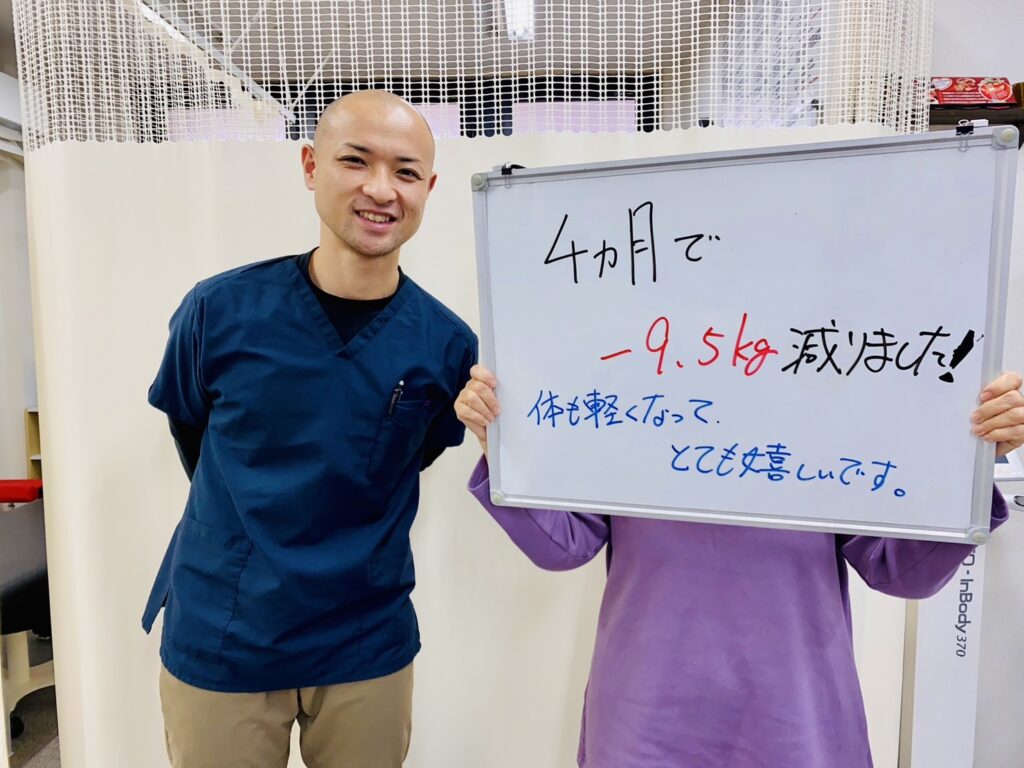 4ヵ月で
-9.5kg減りました!
体も軽くなって.
とても嬉しいです。
InBody 370